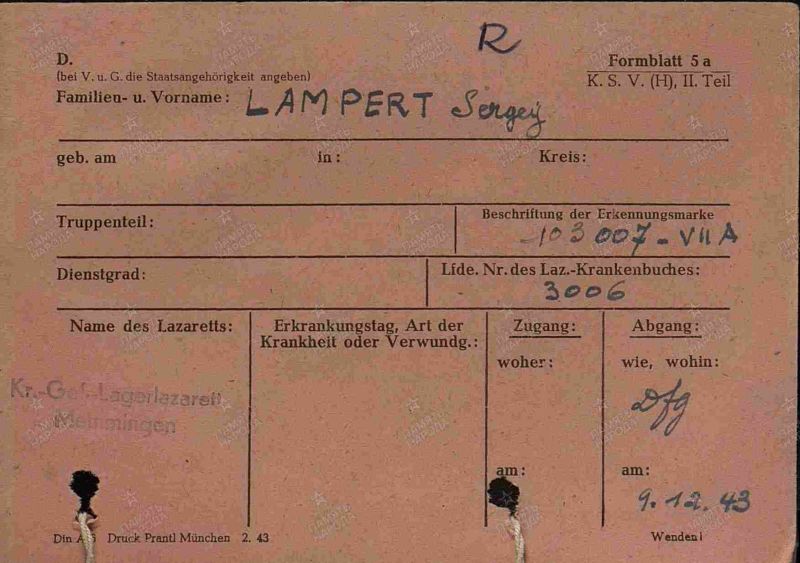 R
D.
Formblatt 5 a
(bei V. u. G. die Staatsangehörigkeit angeben)
K. S. V. (H), II. Teil
Familien- u. Vorname: LAMPERT Sergej
geb. am in: Kreis:
Truppenteil: Beschriftung der Erkennungsmarke
103007-VII A
Dienstgrad: Lfde. Nr. des Laz.-Krankenbuches:
3006
Name des Lazaretts: Erkrankungstag, Art der Krankheit oder Verwundg.: Zugang: Abgang:
woher: wie, wohin:
Kr.-Gef.-Lagerlazarett
Memmingen
Dfg
am: am:
9.12.43
Din A 6 Druck Prantl München 2. 43
Wenden!
ПАМЯТЬ НАРОДА